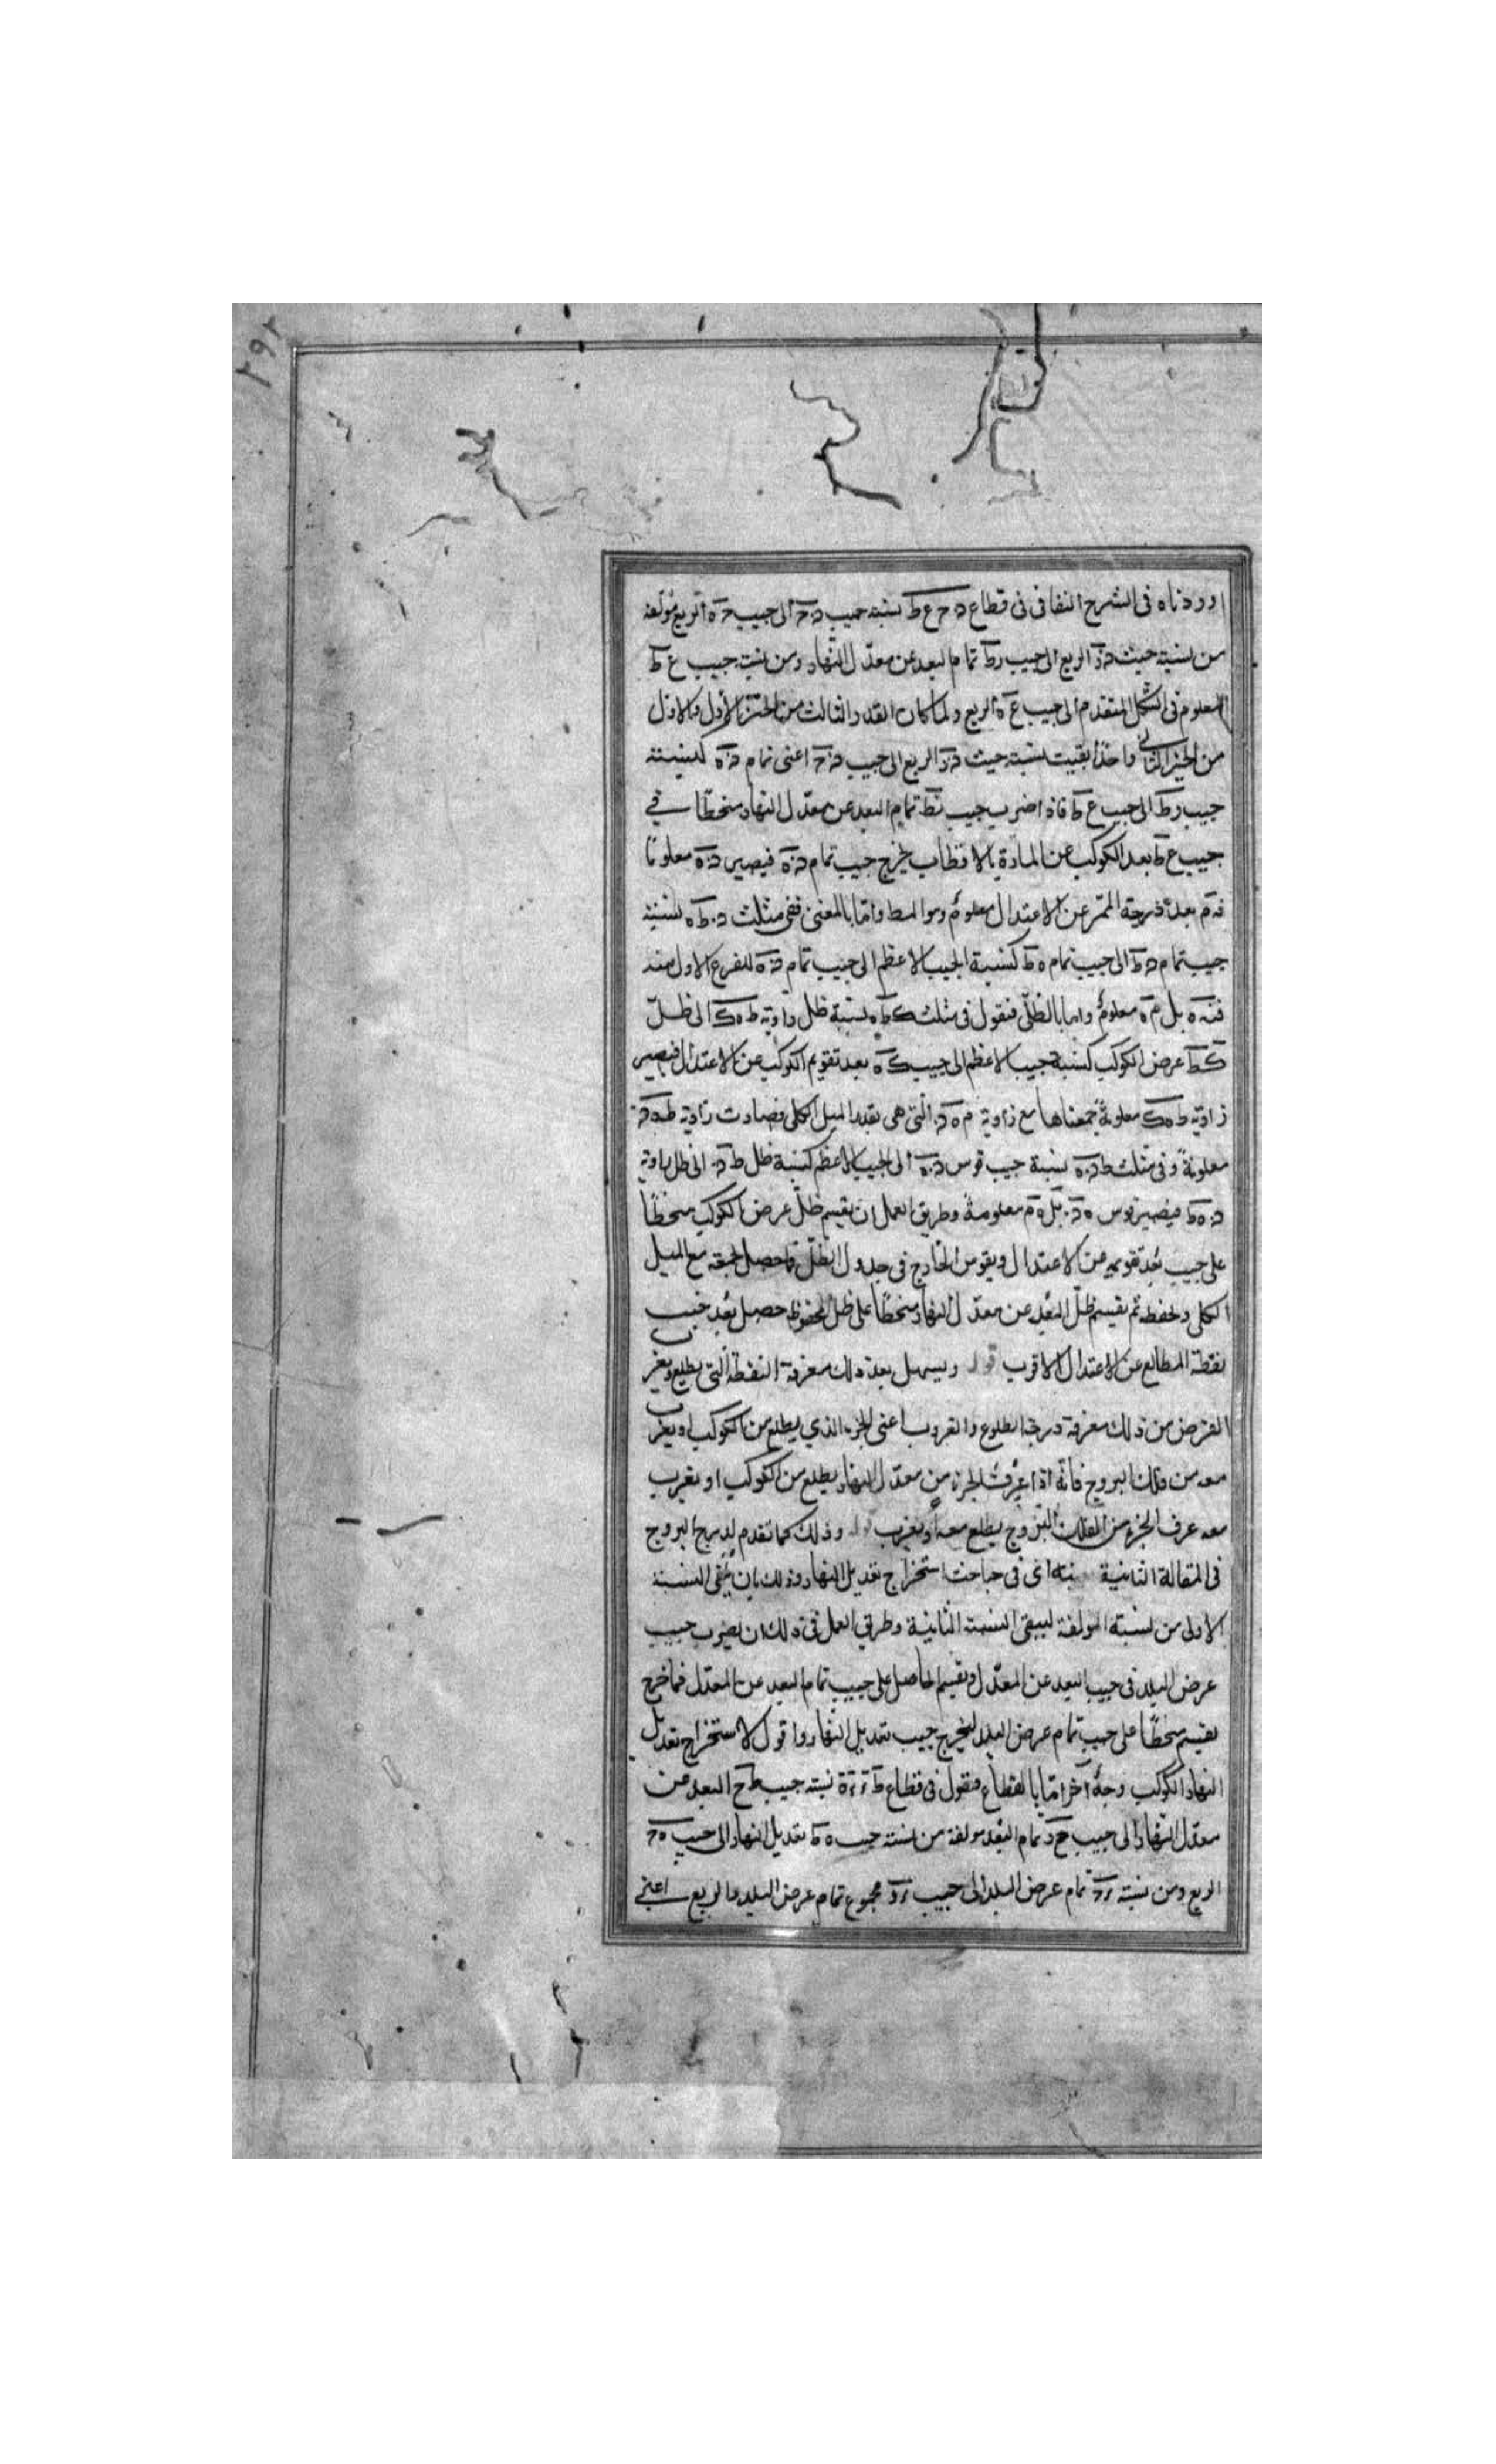 ٢٩٢
اوردناه فى الشرح النفافى فى قطاع د ح ع ط نسبة جيب د ح الى جيب ح ه الربع مؤلفة
من نسبة حيث د ز الربع الى جيب ر ط تمام البعد عن معدّل النهار ومن نسبة جيب ع ط
المعلوم فى الشكل المتقدم الى جيب ع ه الربع ولما كان القدر الثالث من الحيّز الأول والاول
من الحيز الثانى واحدا بقيت نسبة حيث د ز الربع الى جيب د ح اعنى تمام د ه كنسبة
جيب ر ط الى جيب ع ط فاذا ضرب جيب ر ط تمام البعد عن معدّل النهار منحطّا فى
جيب ع ط بعد الكوكب عن المارة بالاقطاب يخرج جيب تمام د ه فيصير د ه معلومًا
فه م بعد درجة الممّر عن الاعتدال معلومٌ وهو المط وامّا بالمغنى ففى مثلث د ط ه نسبة
جيب تمام د ط الى جيب تمام ه ط كنسبة الجيب الاعظم الى جيب تمام د ه للفرع الاول منه
فد ه بل م ه معلومٌ واما بالظلّى فنقول فى مثلث ك ط ه نسبة ظل زاوية ط ه ك الى ظلّ
ك ط عرض الكوكب كنسبة جيب الاعظم الى جيب ك ه بعد تقويم الكوكب عن الاعتدال فيصير
زاوية ط ه ك معلومةً جمعناها مع زاوية م ه د التى هى بقدر الميل الكلى فصارت زاوية ط ه د
معلومةً وفى مثلث ط د ه نسبة جيب قوس د ه الى الجيب الاعظم كنسبة ظل ط د الى ظل زاوية
د ه ط فيصير قوس ه د بل ه م معلومة وطريق العمل ان يقسم ظلّ عرض الكوكب منحطًا
على جيب بُعد تقويمه عن الاعتدال ويقوس الخارج فى جدول الظلّ فما حصل نجمعه مع الميل
الكلى ونحفظه ثم يقسم ظلّ البُعد عن معدّل النهار منحطًا على ظل المحفوظ حصل بُعد جيب
نقطة المطالع عن الاعتدال الاقرب قوله ويسهل بعد ذلك معرفة النقطة التى يطلع ويغرب
الغرض من ذلك معرفة درجة الطلوع والغروب اعنى الجزء الذي يطلع من الكوكب او يغرب
معه من فلك البروج فانّه اذا عُرف الجزء من معدّل النهار يطلع من الكوكب او يغرب
معه عرف الجزء من الفلك البروج يطلع معه أو يغرب قوله وذلك كما تقدم لدرج البروج
فى المقالة الثانية منه اى فى مباحث استخراج تعديل النهار وذلك بان يُلقى النسبة
الاولى من نسبة المولفة ليبقى النسبة الثانية وطريق العمل فى ذلك ان يضرب جيب
عرض البلد فى جيب البعد عن المعدّل ويقسم الحاصل على جيب تمام البعد عن المعدّل فما خرج
يقسم منحطًا على جيب تمام عرض البلد ليخرج جيب تعديل النهار واقول لاستخراج تعديل
النهار الكوكب وجهٌ آخر امّا بالقطاع فنقول فى قطاع ط ز ه نسبة جيب ط ح البعد عن
معدّل النهار الى جيب ح د تمام البعد مولفة من نسبة جيب ه ط تعديل النهار الى جيب ه ح
الربع ومن نسبة ر د تمام عرض البلد الى جيب ر و مجموع تمام عرض البلد والربع اعنى